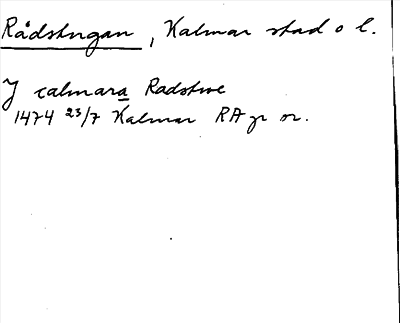 Rådstugan, Kalmar stad o l.
J calmara Radstwe
1474 23/7 Kalmar RA p or.